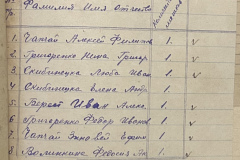 Фамилия Имя Отчество
1. Чапай Алексей Филипов 1. v
2. Григоренко Нина Григор 1. v
3. Скибицька Люба Иван 1. v
4. Скибицька Елена Ант 1.
5. Берест Иван Алекс. 1. v
6. Григоренко Федор Иванов 1. v
7. Чапай Зиновей Ефим 1. v
8. Федосия 1. v